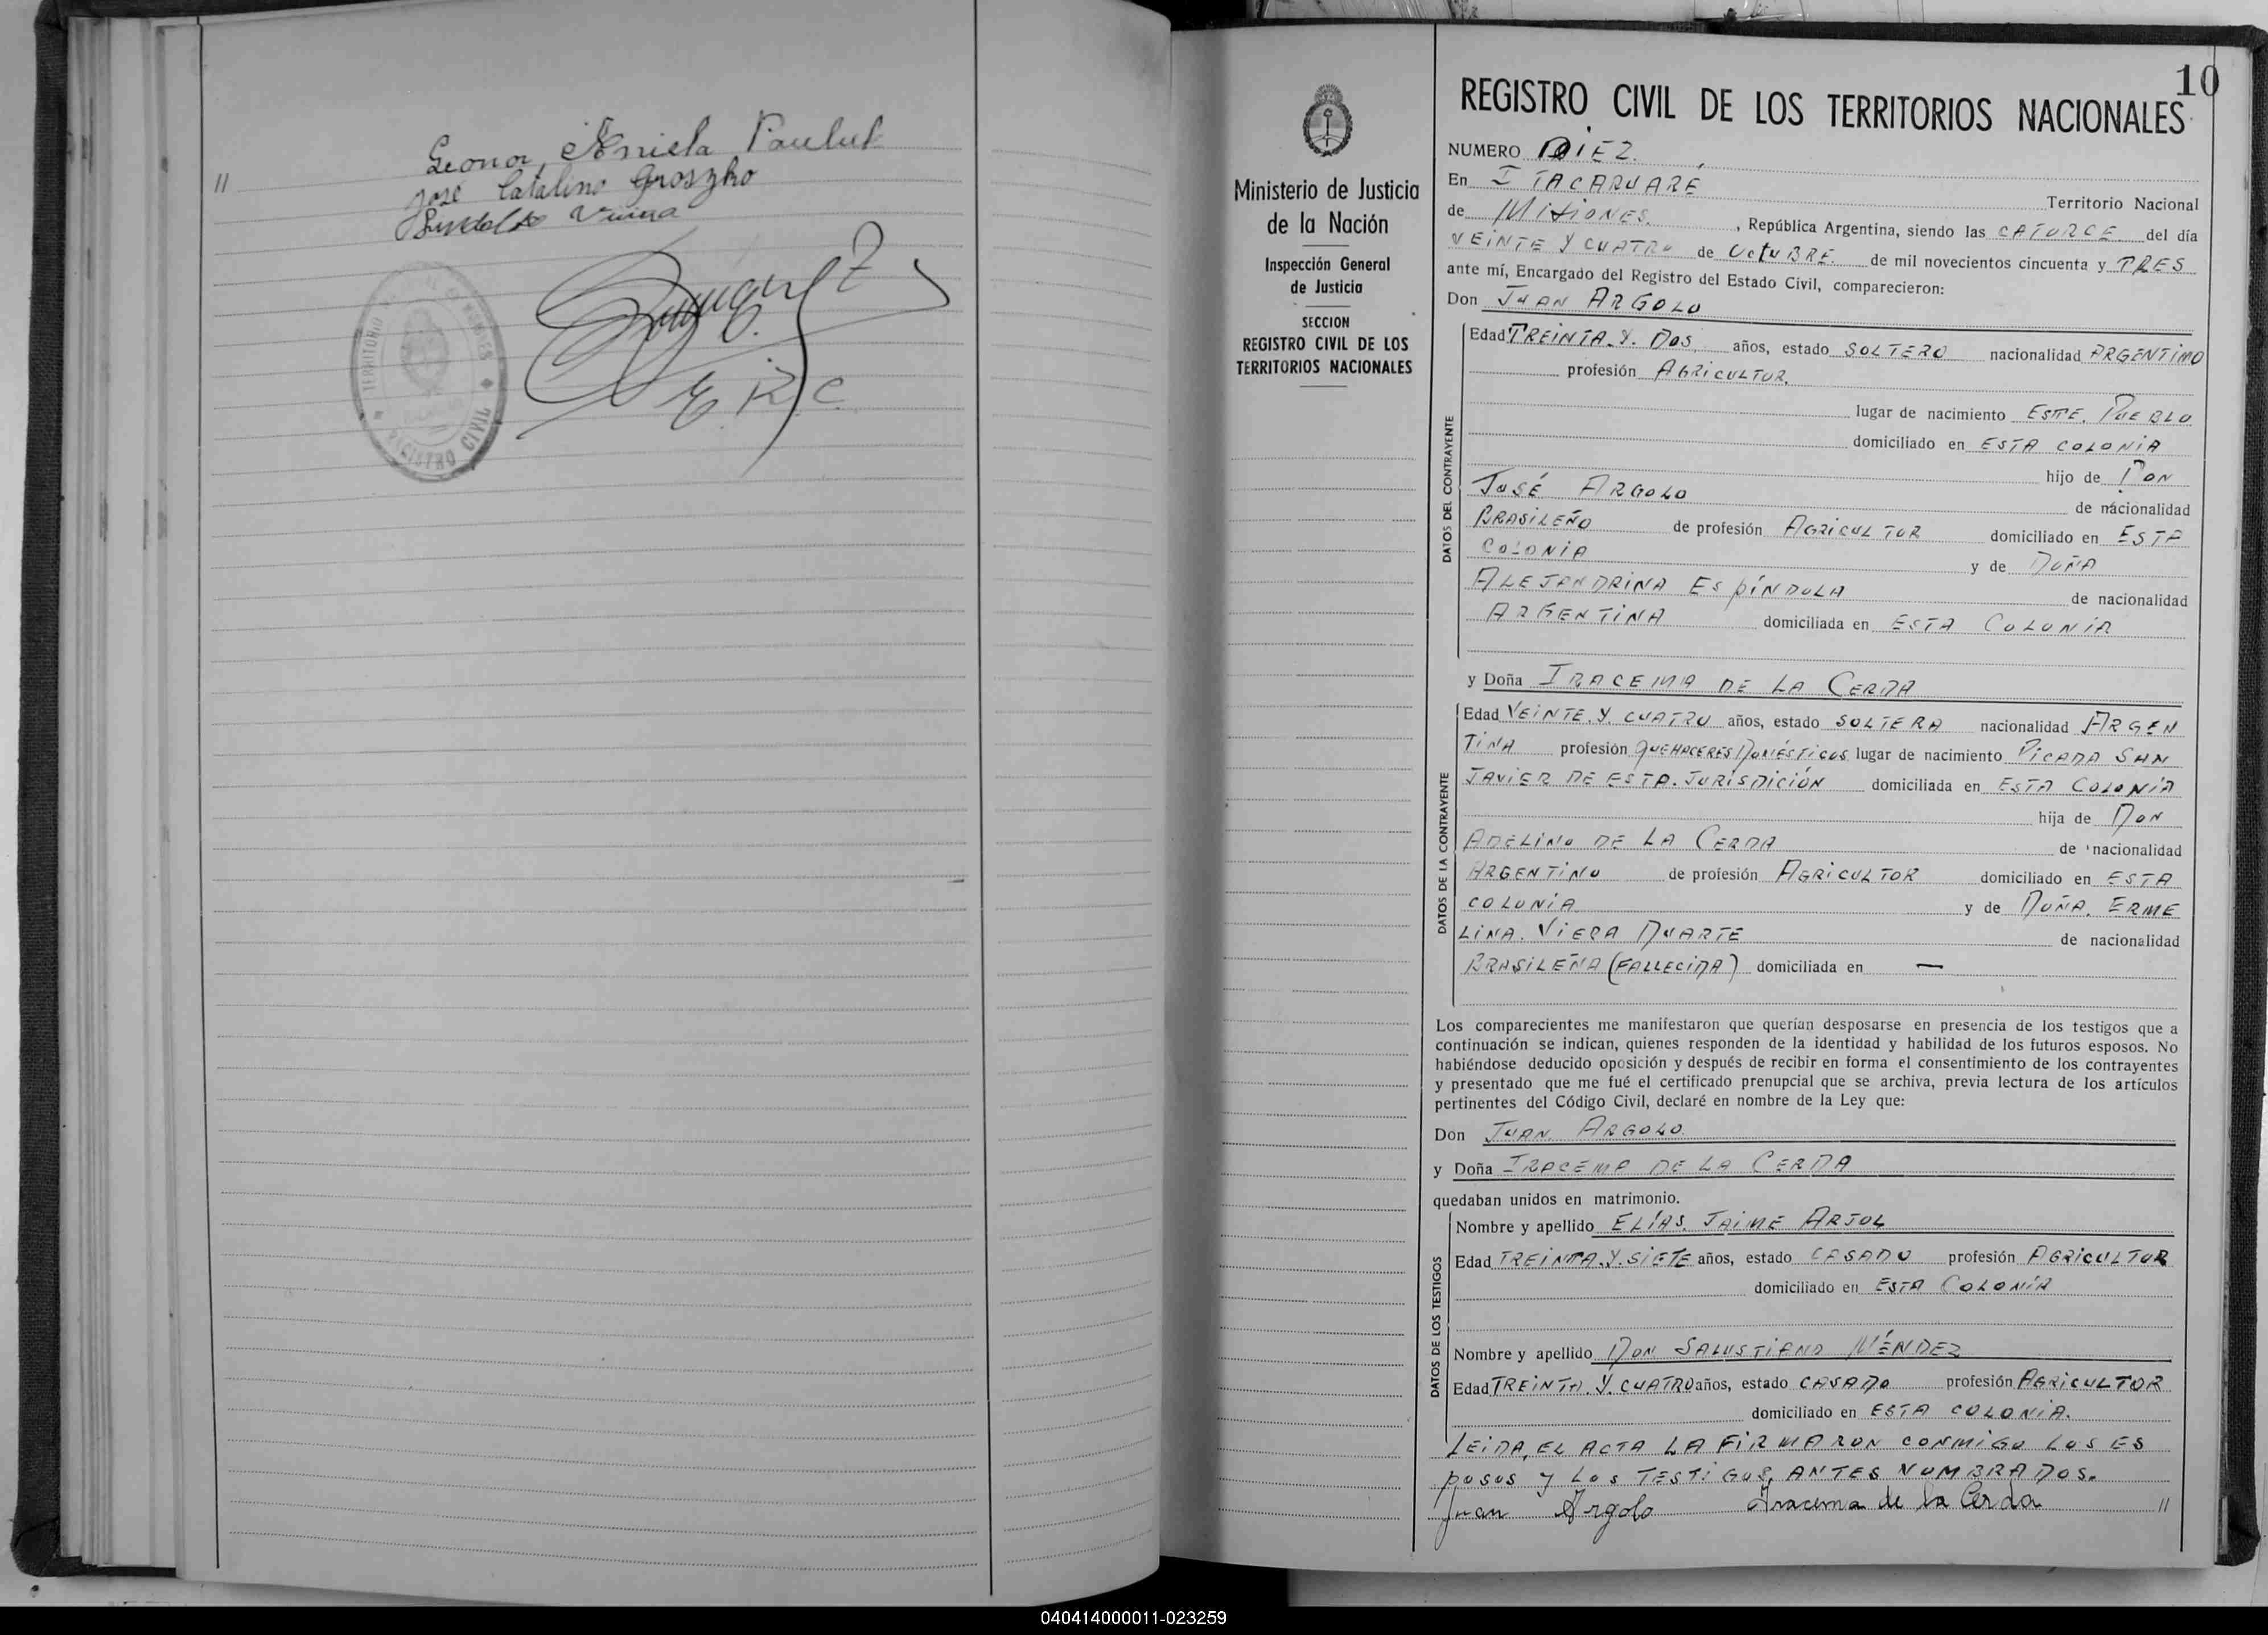 Leonor Aniela Paulul
// José Catalino Groszko
TERRITORIO
REGISTRO CIVIL
E. R. C.
10
Ministerio de Justicia
de la Nación
Inspección General
de Justicia
SECCION
REGISTRO CIVIL DE LOS
TERRITORIOS NACIONALES
REGISTRO CIVIL DE LOS TERRITORIOS NACIONALES
NUMERO DIEZ.
En ITACARUARE
Territorio Nacional
de MISIONES. , República Argentina, siendo las CATORCE del día
VEINTE Y CUATRO de OCTUBRE. de mil novecientos cincuenta y TRES
ante mí, Encargado del Registro del Estado Civil, comparecieron:
Don JUAN ARGOLO
DATOS DEL CONTRAYENTE
Edad TREINTA. Y. DOS años, estado SOLTERO nacionalidad ARGENTINO
profesión AGRICULTOR.
lugar de nacimiento ESTE. PUEBLO
domiciliado en ESTA COLONIA
hijo de DON
JOSÉ ARGOLO de nacionalidad
BRASILEÑO de profesión AGRICULTOR domiciliado en ESTA
COLONIA y de DOÑA
ALEJANDRINA ESPÍNDOLA de nacionalidad
ARGENTINA domiciliada en ESTA COLONIA
y Doña IRACEMA DE LA CERDA
DATOS DE LA CONTRAYENTE
Edad VEINTE. Y. CUATRO años, estado SOLTERA nacionalidad ARGEN
TINA profesión QUEHACERES DOMÉSTICOS lugar de nacimiento PICADA SAN
JAVIER DE ESTA. JURISDICIÓN domiciliada en ESTA COLONIA
hija de DON
ADELINO DE LA CERDA de nacionalidad
ARGENTINO de profesión AGRICULTOR domiciliado en ESTA
COLONIA y de DOÑA. ERME
LINA. VIERA DUARTE de nacionalidad
BRASILEÑA (FALLECIDA) domiciliada en —
Los comparecientes me manifestaron que querían desposarse en presencia de los testigos que a
continuación se indican, quienes responden de la identidad y habilidad de los futuros esposos. No
habiéndose deducido oposición y después de recibir en forma el consentimiento de los contrayentes
y presentado que me fué el certificado prenupcial que se archiva, previa lectura de los artículos
pertinentes del Código Civil, declaré en nombre de la Ley que:
Don JUAN. ARGOLO.
y Doña IRACEMA DE LA CERDA
quedaban unidos en matrimonio.
DATOS DE LOS TESTIGOS
Nombre y apellido ELÍAS. JAIME ARJOL
Edad TREINTA. Y. SIETE años, estado CASADO profesión AGRICULTOR
domiciliado en ESTA COLONIA
Nombre y apellido DON SALUSTIANO MÉNDEZ
Edad TREINTA. Y. CUATRO años, estado CASADO profesión AGRICULTOR
domiciliado en ESTA COLONIA.
LEIDA, EL ACTA LA FIRMARON CONMIGO LOS ES
POSOS Y LOS TESTIGOS, ANTES NOMBRADOS.
Juan Argolo Iracema de la Cerda //
040414000011-023259